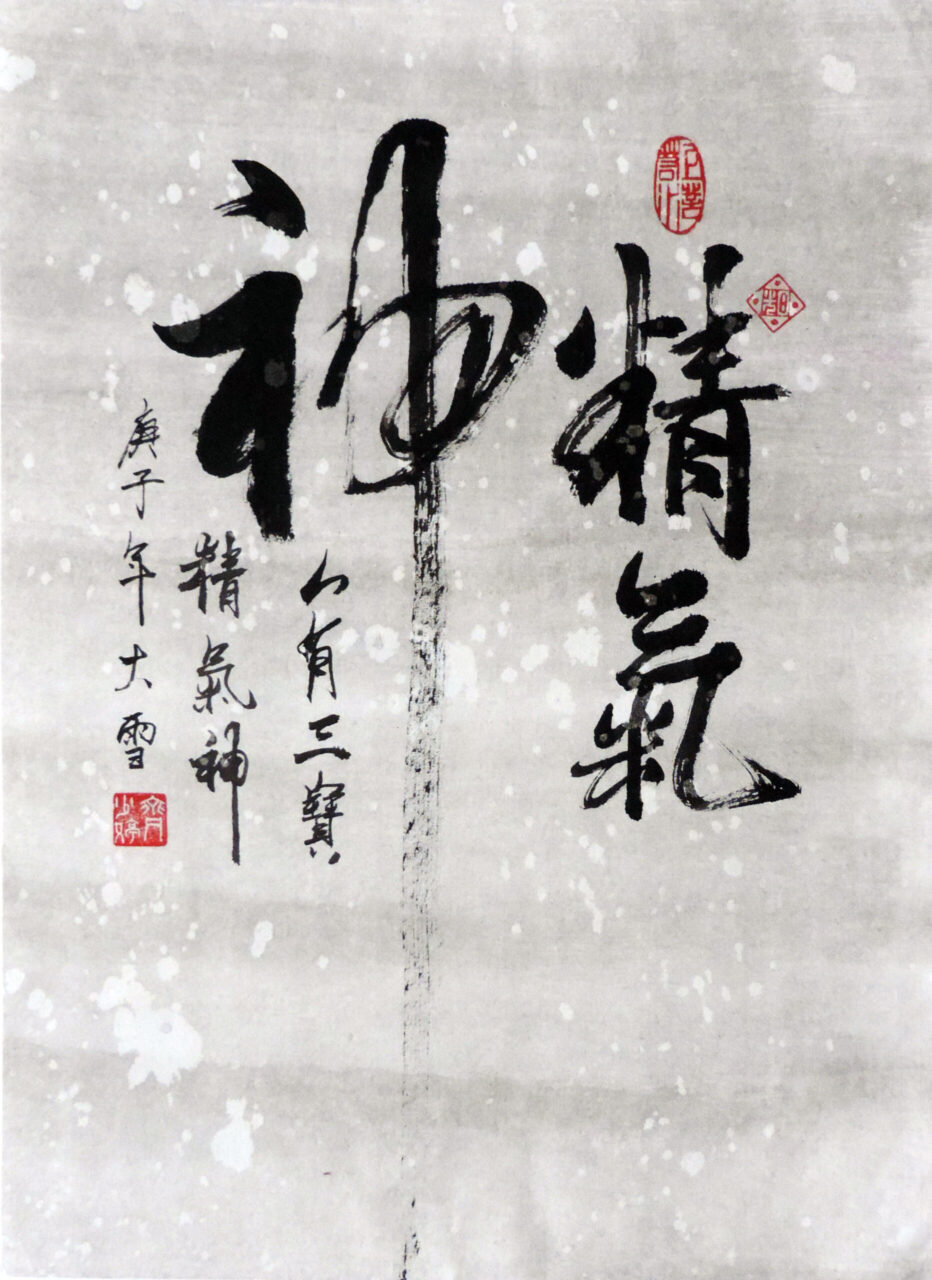 精氣
神
人有三寶
精氣神
庚子年大雪
齊少婷